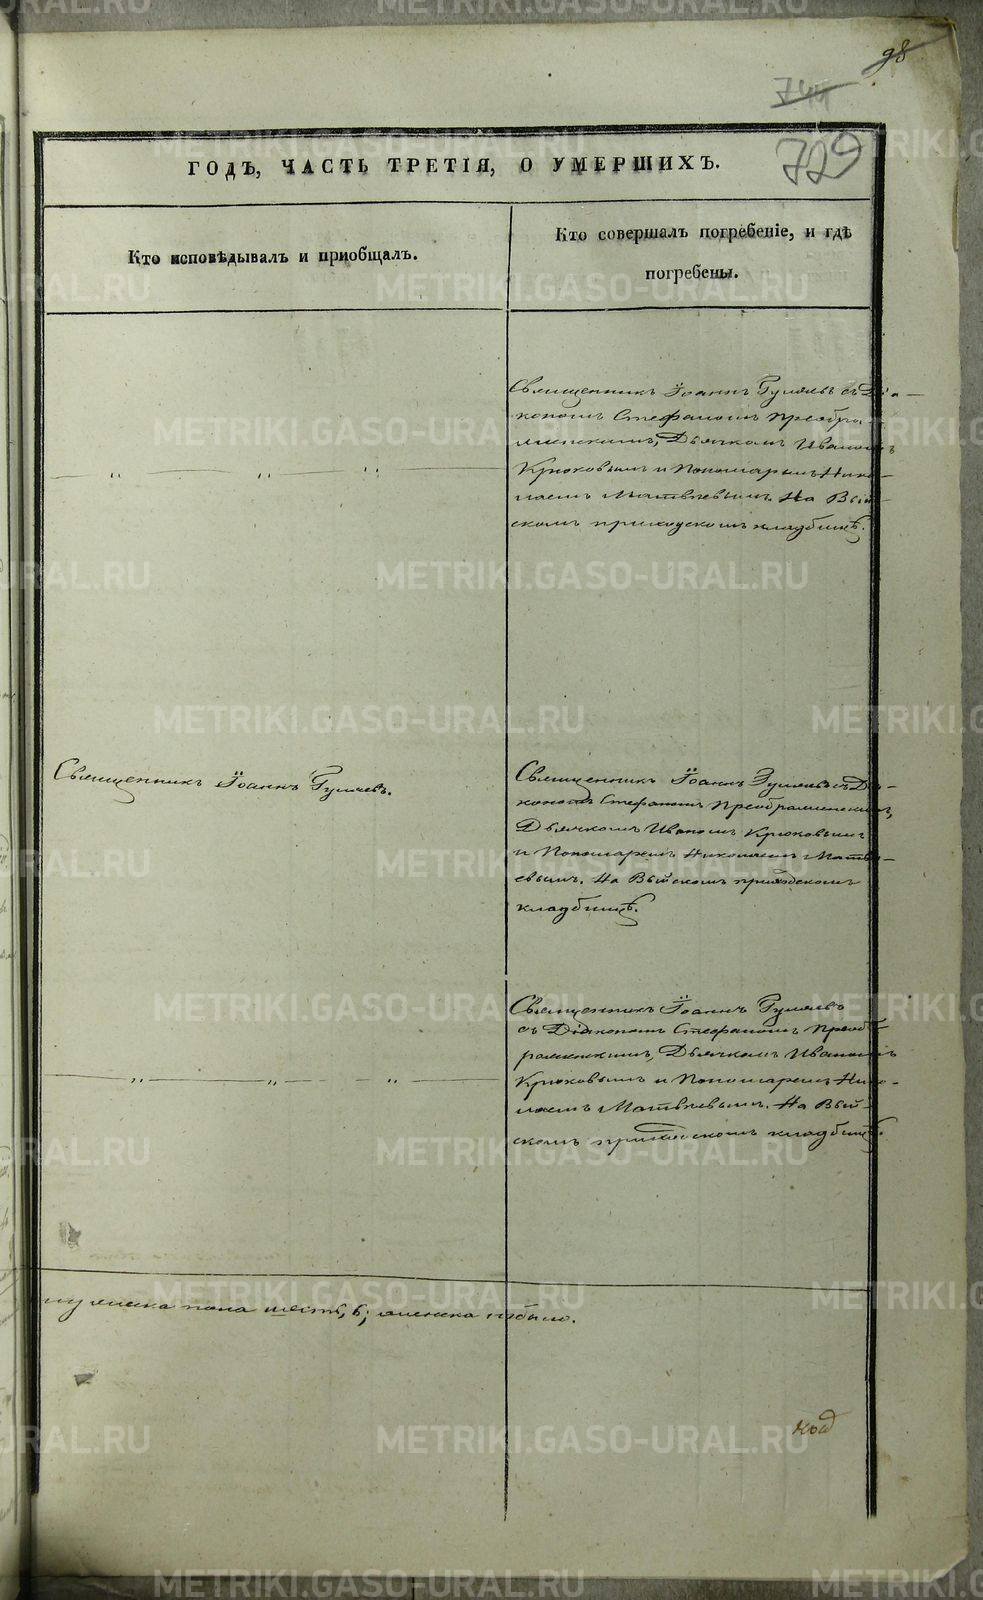 98
744
729
ГОДЪ, ЧАСТЬ ТРЕТІЯ, О УМЕРШИХЪ.
Кто исповѣдывалъ и приобщалъ.
Кто совершалъ погребеніе, и гдѣ
погребены.
Священникъ Іоаннъ Гуляевъ съ Діа-
кономъ Стефаномъ Преобра-
женскимъ, Дьячкомъ Иваномъ
Крюковымъ и Пономаремъ Нико-
лаемъ Матвѣевымъ. На Вый-
скомъ приходскомъ кладбищѣ.
Священникъ Іоаннъ Гуляевъ.
Священникъ Іоаннъ Гуляевъ съ Діа-
кономъ Стефаномъ Преображенскимъ,
Дьячкомъ Иваномъ Крюковымъ
и Пономаремъ Николаемъ Матвѣ-
евымъ. На Выйскомъ приходскомъ
кладбищѣ.
Священникъ Іоаннъ Гуляевъ
съ Діакономъ Стефаномъ Преоб-
раженскимъ, Дьячкомъ Иваномъ
Крюковымъ и Пономаремъ Нико-
лаемъ Матвѣевымъ. На Вый-
скомъ приходскомъ кладбищѣ.
мужеска пола шесть, 6; женска
METRIKI.GASO-URAL.RU